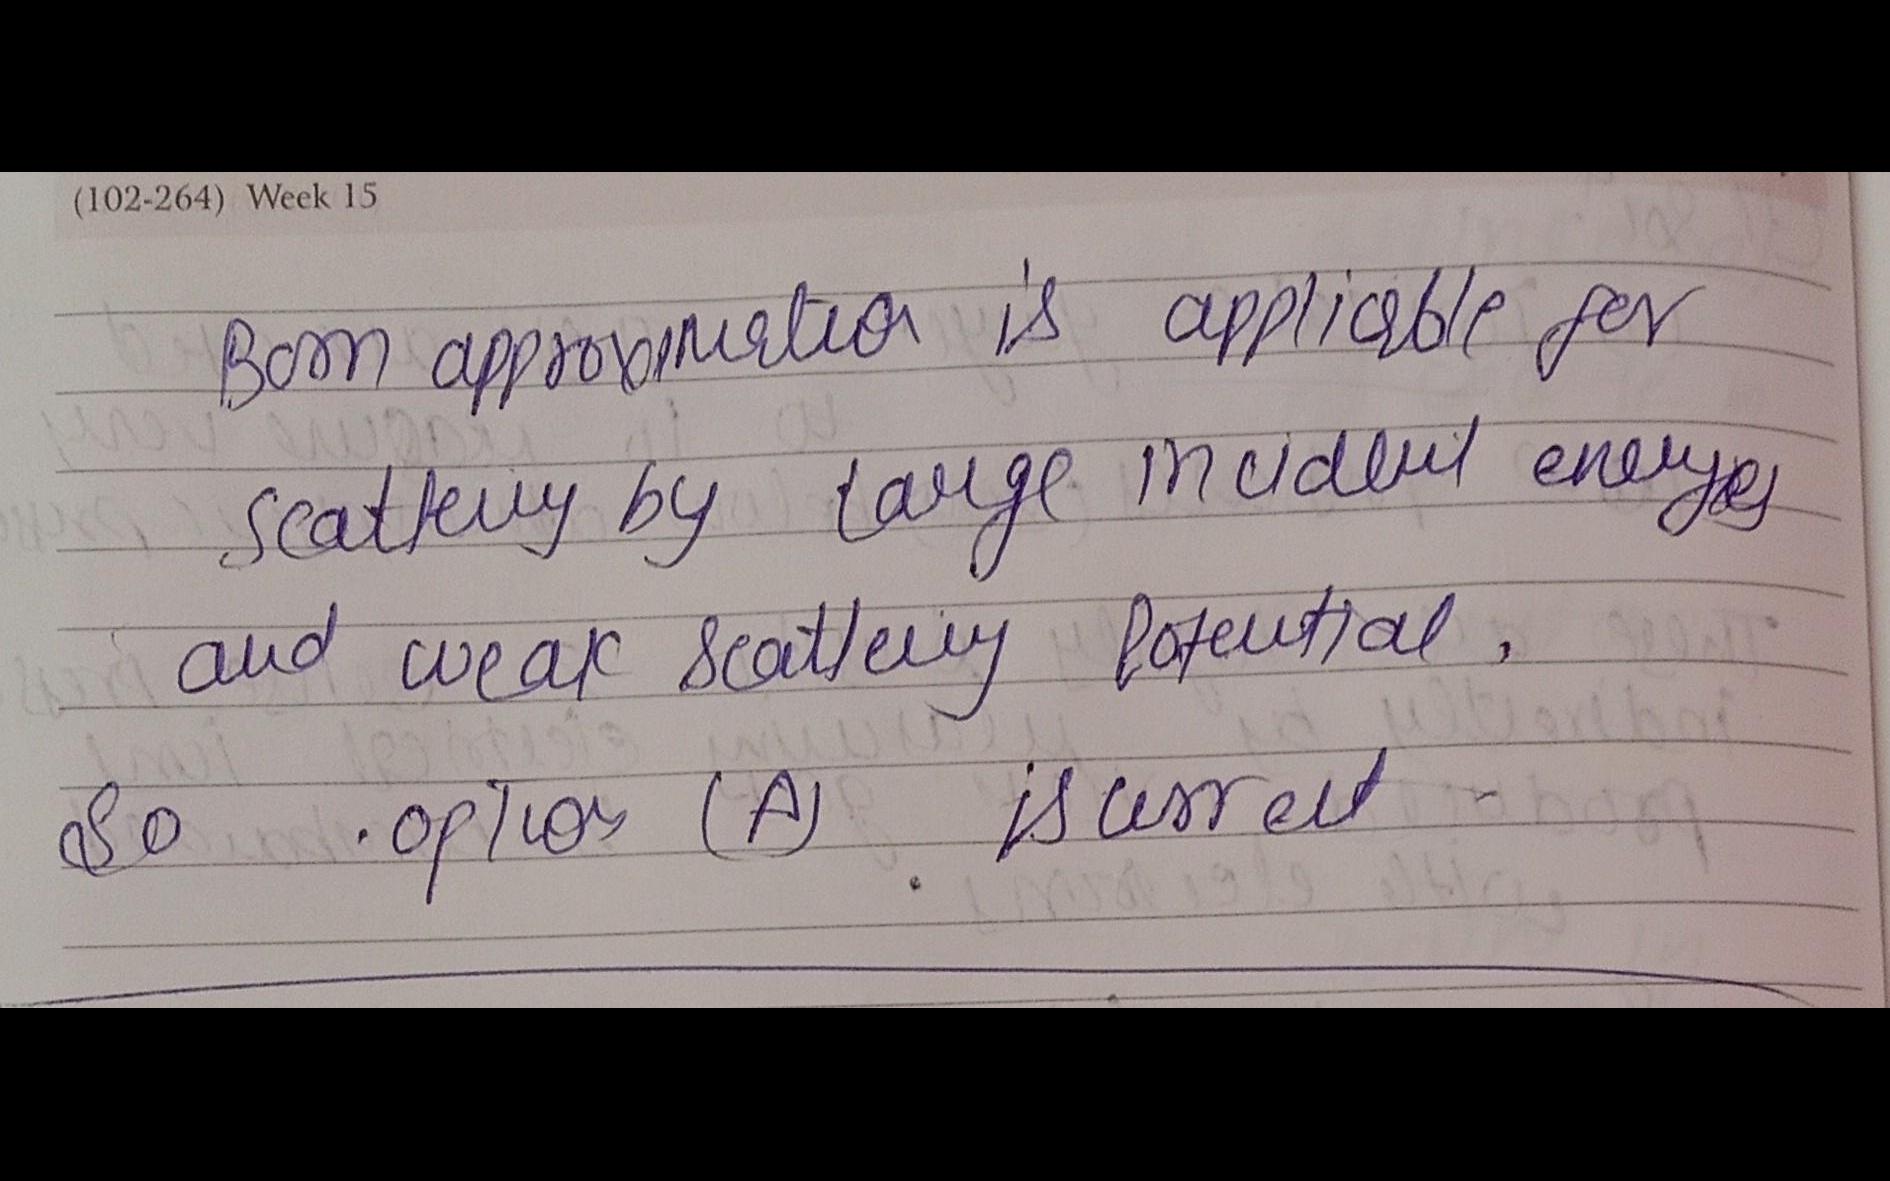 (102-264) Week 15
Born approximation is applicable for
scattering by large incident energies
and weak scattering Potential,
So . option (A) is correct -